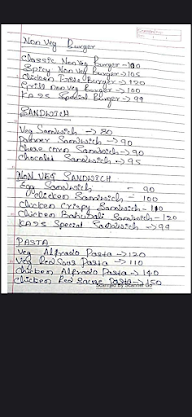 Non Veg Burger
Classic Non Veg Burger - 90
Spicy Non Veg Burger → 105
Chicken Burger → 120
Grill non Veg Burger → 100
KA95 Special Burger → 99
SANDWICH
Veg Sandwich → 80
Paneer Sandwich → 90
Cheese Corn Sandwich → 90
Chocolat Sandwich → 95
NON VEG SANDWICH
Egg Sandwich - 90
Chicken Sandwich - 100
Chicken Crispy Sandwich - 110
Chicken Bahubali Sandwich - 120
KA95 Special Sandwich → 99
PASTA
Veg Alfrado Pasta → 120
Veg Red Sous Pasta → 110
Chicken Alfrado Pasta → 140
Chicken Red Sause Pasta → 150